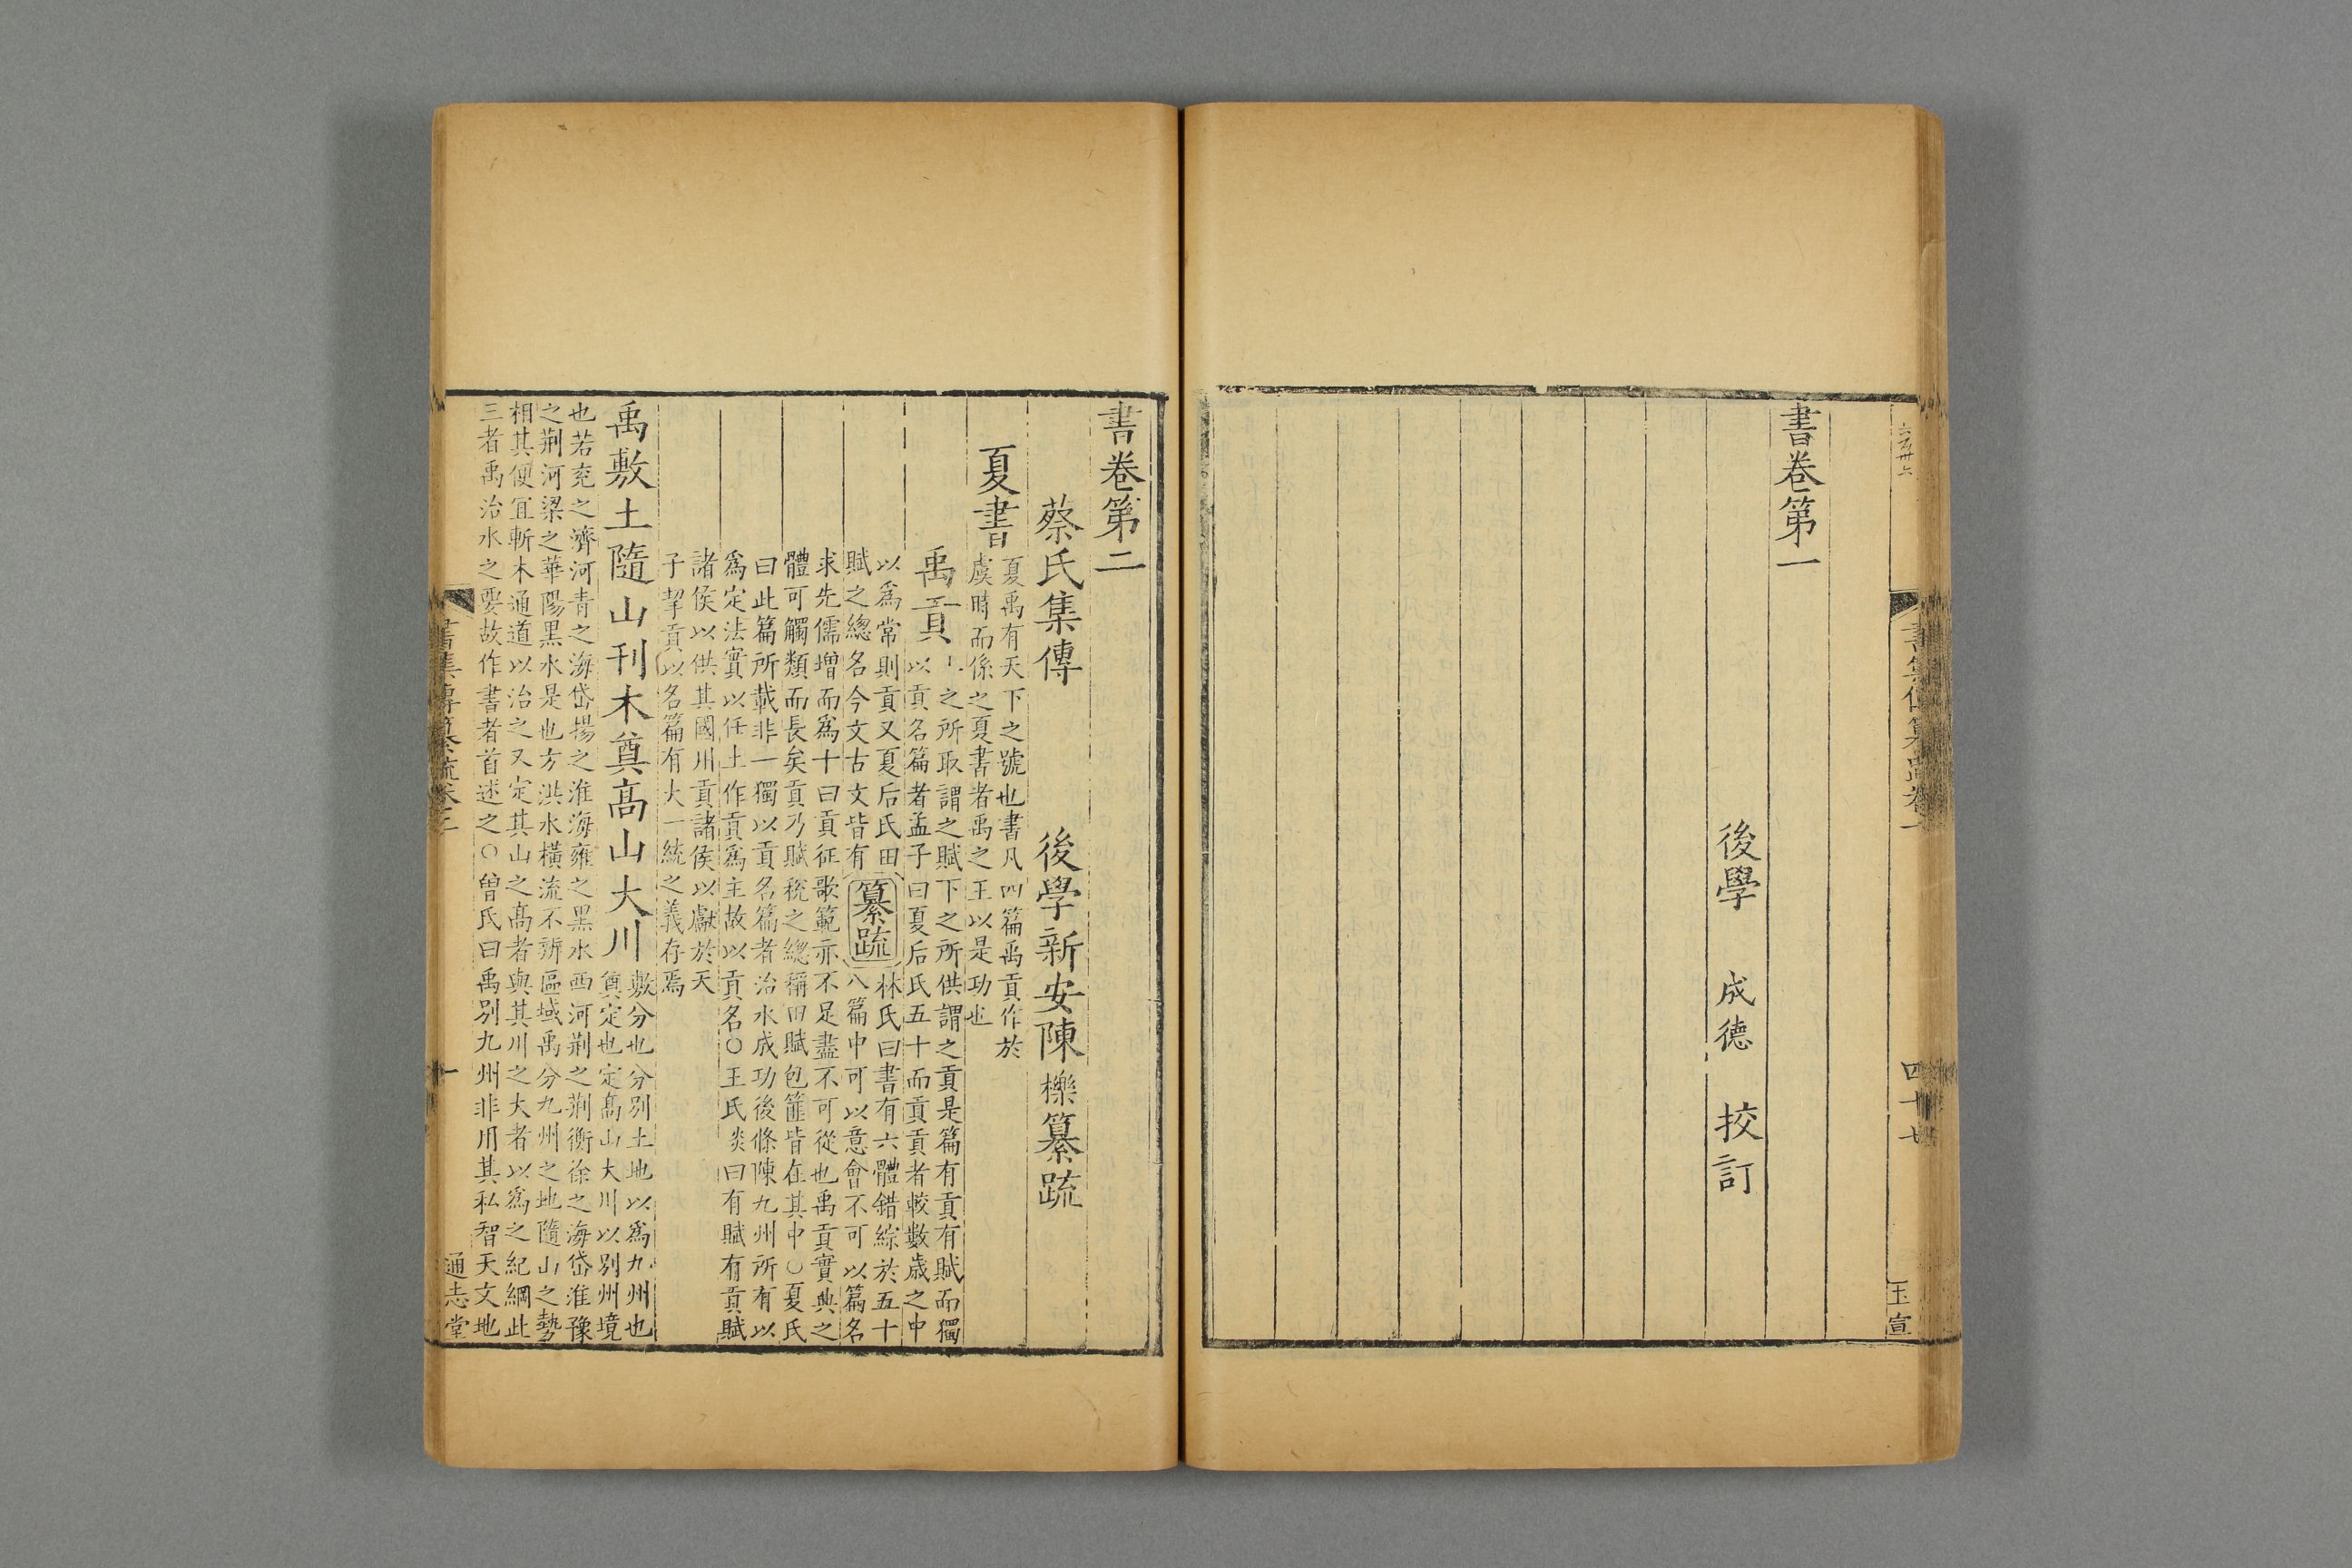 書卷第一
後學 成德 挍訂
四十七
玉宣
書卷第二
蔡氏集傳 後學新安陳櫟纂疏
夏書
夏禹有天下之號也書凡四篇禹貢作於
虞時而係之夏書者禹之王以是功也
禹貢
上之所取謂之賦下之所供謂之貢是篇有貢有賦而獨
以貢名篇者孟子曰夏后氏五十而貢貢者較數歲之中
以爲常則貢又夏后氏田
賦之緫名今文古文皆有
纂疏
林氏曰書有六體錯綜於五十
八篇中可以意會不可以篇名
求先儒增而爲十曰貢征歌範亦不足盡不可從也禹貢實典之
體可觸類而長矣貢乃賦稅之緫稱田賦包篚皆在其中○夏氏
曰此篇所載非一獨以貢名篇者治水成功後條陳九州所有以
爲定法實以任土作貢爲主故以貢名○王氏炎曰有賦有貢賦
諸侯以供其國用貢諸侯以獻於天
子挈貢以名篇有大一統之義存焉
禹敷土隨山刊木奠髙山大川
敷分也分别土地以爲九州也
奠定也定髙山大川以别州境
也若兖之濟河青之海岱揚之淮海雍之黑水西河荆之荆衡徐之海岱淮豫
之荆河梁之華陽黑水是也方洪水橫流不辨區域禹分九州之地隨山之勢
相其便宜斬木通道以治之又定其山之髙者與其川之大者以爲之紀綱此
三者禹治水之要故作書者首述之○曾氏曰禹别九州非用其私智天文地
書集傳纂疏卷二
一
通志堂